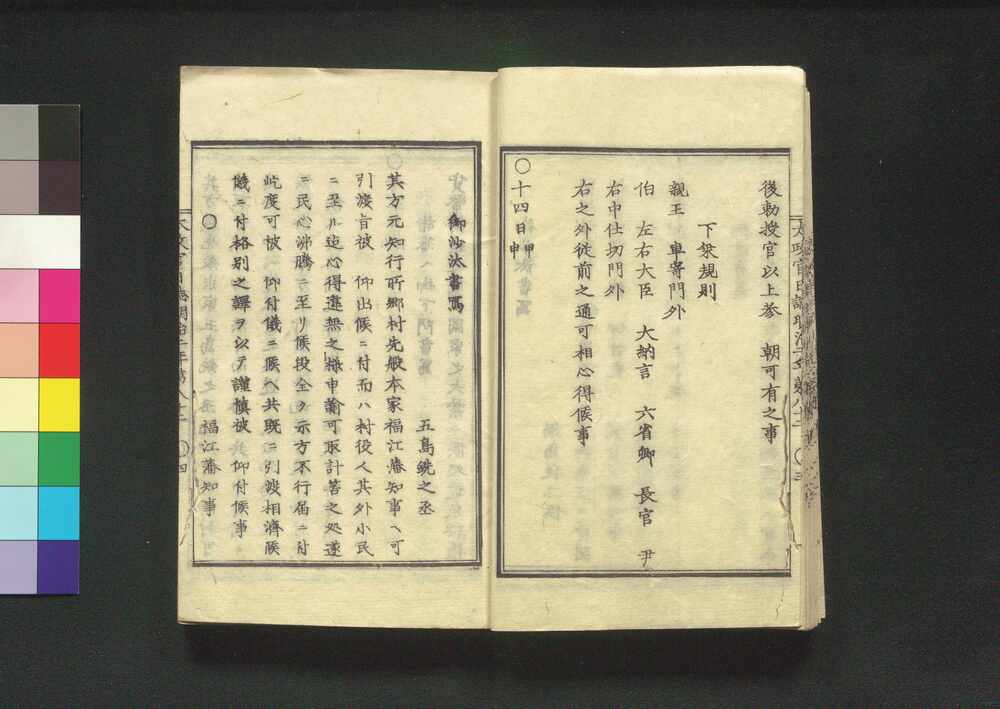 後勅授官以上参　朝可有之事
下椉規則
親王　車寄門外
伯　左右大臣　大納言　六省卿　長官　尹
右中仕切門外
右之外従前之通可相心得候事
〇十四日甲申
御沙汰書寫
五島銑之丞
其方元知行所郷村先般本家福江藩知事ヘ可
引渡旨被　仰出候ニ付而ハ村役人其外小民
ニ至ル迄心得違無之様申諭可取計筈之処遂
ニ民心沸騰ニ至リ候段全ク示方不行届ニ付
屹度可被　仰付儀ニ候ヘ共既ニ引渡相濟候
儀ニ付格別之譯ヲ以テ謹慎被　仰付候事
〇　福江藩知事